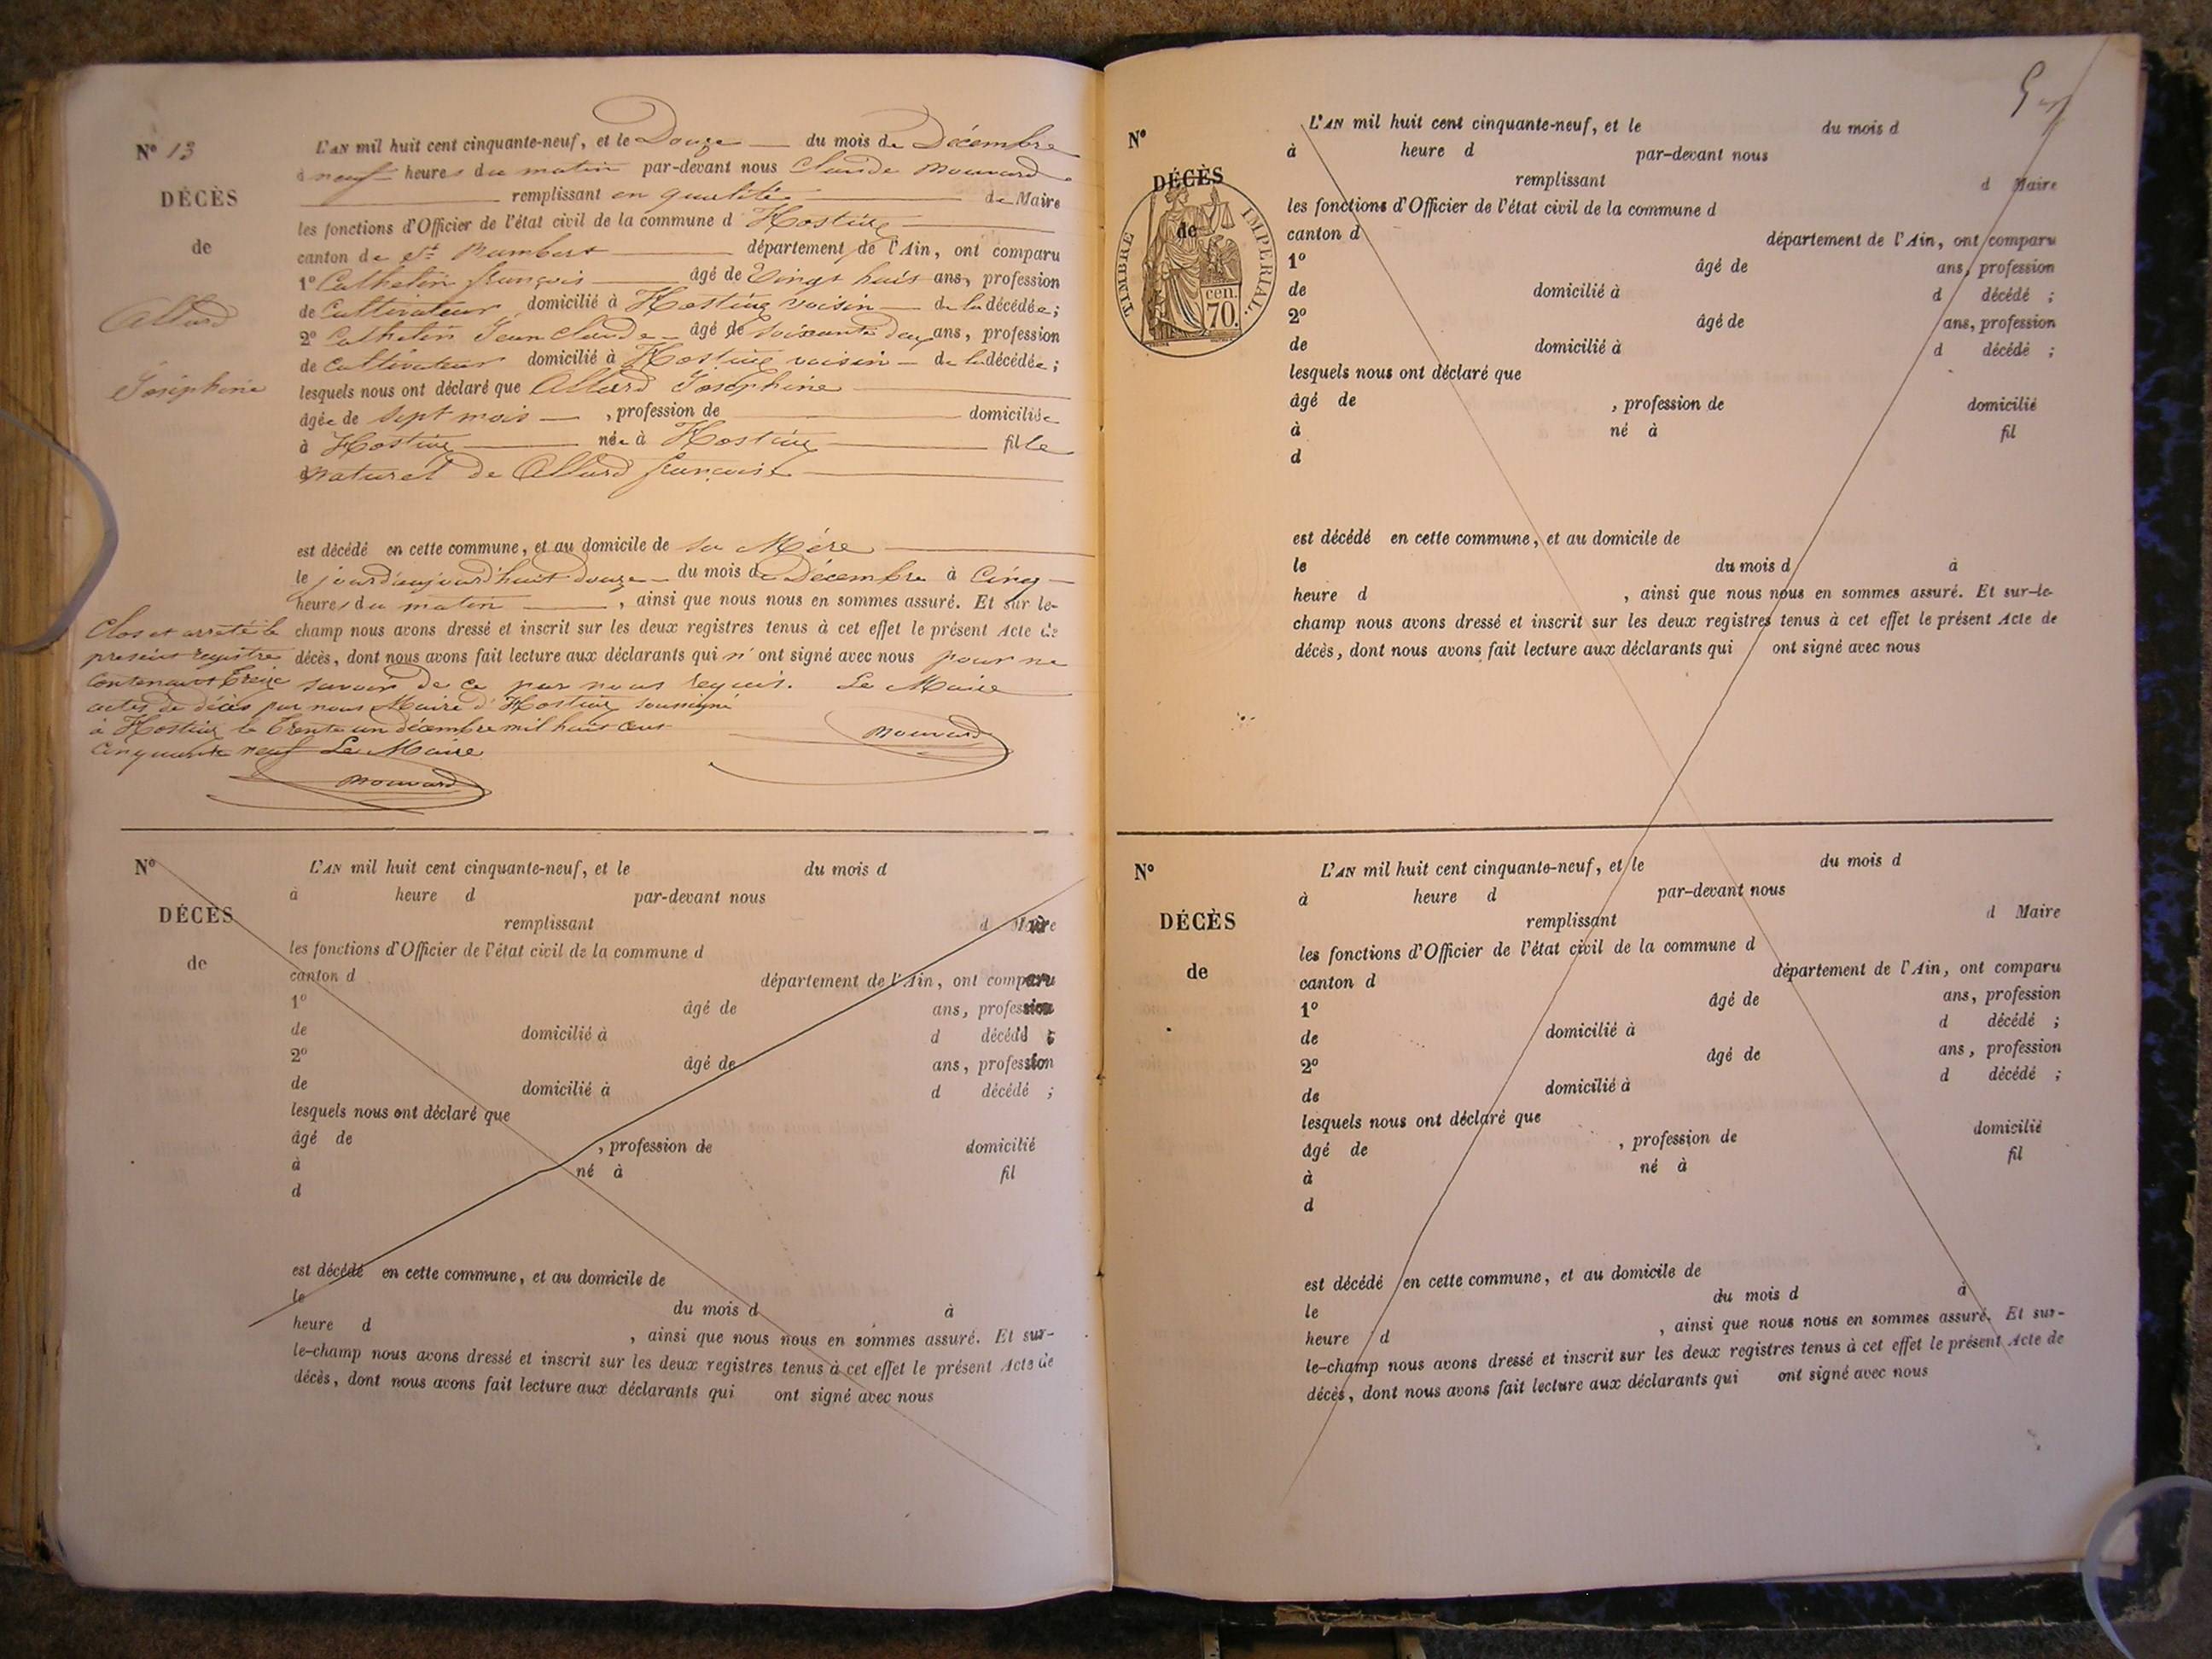 N° 13
DÉCÈS
de
Allard
Joséphine
L'AN mil huit cent cinquante-neuf, et le Douze du mois de Décembre
à neuf heures du matin par-devant nous Claude Mouvard
remplissant en qualité de Maire
les fonctions d'Officier de l'état civil de la commune d'Hostiaz
canton de St Rambert département de l'Ain, ont comparu
1° Cathelin françois âgé de Vingt huit ans, profession
de Cultivateur domicilié à Hostiaz voisin de la décédée ;
2° Cathelin Jean Claude âgé de soixante deux ans, profession
de Cultivateur domicilié à Hostiaz voisin de la décédée ;
lesquels nous ont déclaré que Allard Joséphine
âgée de sept mois , profession de domiciliée
à Hostiaz née à Hostiaz fille
naturel de Allard françoise
est décédé en cette commune, et au domicile de sa Mère
le jourd'aujourd'huit douze du mois de Décembre à Cinq
heures du matin , ainsi que nous nous en sommes assuré. Et sur le-
champ nous avons dressé et inscrit sur les deux registres tenus à cet effet le présent Acte de
décès, dont nous avons fait lecture aux déclarants qui n'ont signé avec nous pour ne
savoir de ce par nous requis. Le Maire
Mouvard
Clos et arrêté le
présent registre
Contenant treize
actes de décès par nous Maire d'Hostiaz soussigné
à Hostiaz le trente un décembre mil huit cent
cinquante neuf Le Maire
Mouvard
N°
DÉCÈS
de
L'AN mil huit cent cinquante-neuf, et le du mois d
à heure d par-devant nous
remplissant d Maire
les fonctions d'Officier de l'état civil de la commune d
canton d département de l'Ain, ont comparu
1° âgé de ans, profession
de domicilié à d décédé ;
2° âgé de ans, profession
de domicilié à d décédé ;
lesquels nous ont déclaré que
âgé de , profession de domicilié
à né à fil
d
est décédé en cette commune, et au domicile de
le du mois d à
heure d , ainsi que nous nous en sommes assuré. Et sur-
le-champ nous avons dressé et inscrit sur les deux registres tenus à cet effet le présent Acte de
décès, dont nous avons fait lecture aux déclarants qui ont signé avec nous
N°
DÉCÈS
de
TIMBRE IMPERIAL
70 cen.
L'AN mil huit cent cinquante-neuf, et le du mois d
à heure d par-devant nous
remplissant d Maire
les fonctions d'Officier de l'état civil de la commune d
canton d département de l'Ain, ont comparu
1° âgé de ans, profession
de domicilié à d décédé ;
2° âgé de ans, profession
de domicilié à d décédé ;
lesquels nous ont déclaré que
âgé de , profession de domicilié
à né à fil
d
est décédé en cette commune, et au domicile de
le du mois d à
heure d , ainsi que nous nous en sommes assuré. Et sur-le-
champ nous avons dressé et inscrit sur les deux registres tenus à cet effet le présent Acte de
décès, dont nous avons fait lecture aux déclarants qui ont signé avec nous
N°
DÉCÈS
de
L'AN mil huit cent cinquante-neuf, et le du mois d
à heure d par-devant nous
remplissant d Maire
les fonctions d'Officier de l'état civil de la commune d
canton d département de l'Ain, ont comparu
1° âgé de ans, profession
de domicilié à d décédé ;
2° âgé de ans, profession
de domicilié à d décédé ;
lesquels nous ont déclaré que
âgé de , profession de domicilié
à né à fil
d
est décédé en cette commune, et au domicile de
le du mois d à
heure d , ainsi que nous nous en sommes assuré. Et sur-
le-champ nous avons dressé et inscrit sur les deux registres tenus à cet effet le présent Acte de
décès, dont nous avons fait lecture aux déclarants qui ont signé avec nous